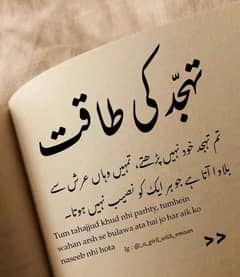 تہجّد کی طاقت
تم تہجد خود نہیں پڑھتے، تمہیں وہاں عرش سے
بلاوا آتا ہے جو ہر ایک کو نصیب نہیں ہوتا۔
Tum tahajjud khud nhi parhty, tumhein
wahan arsh se bulawa ata hai jo har aik ko
naseeb nhi hota
Ig : @_a_girl_with_emaan
>>